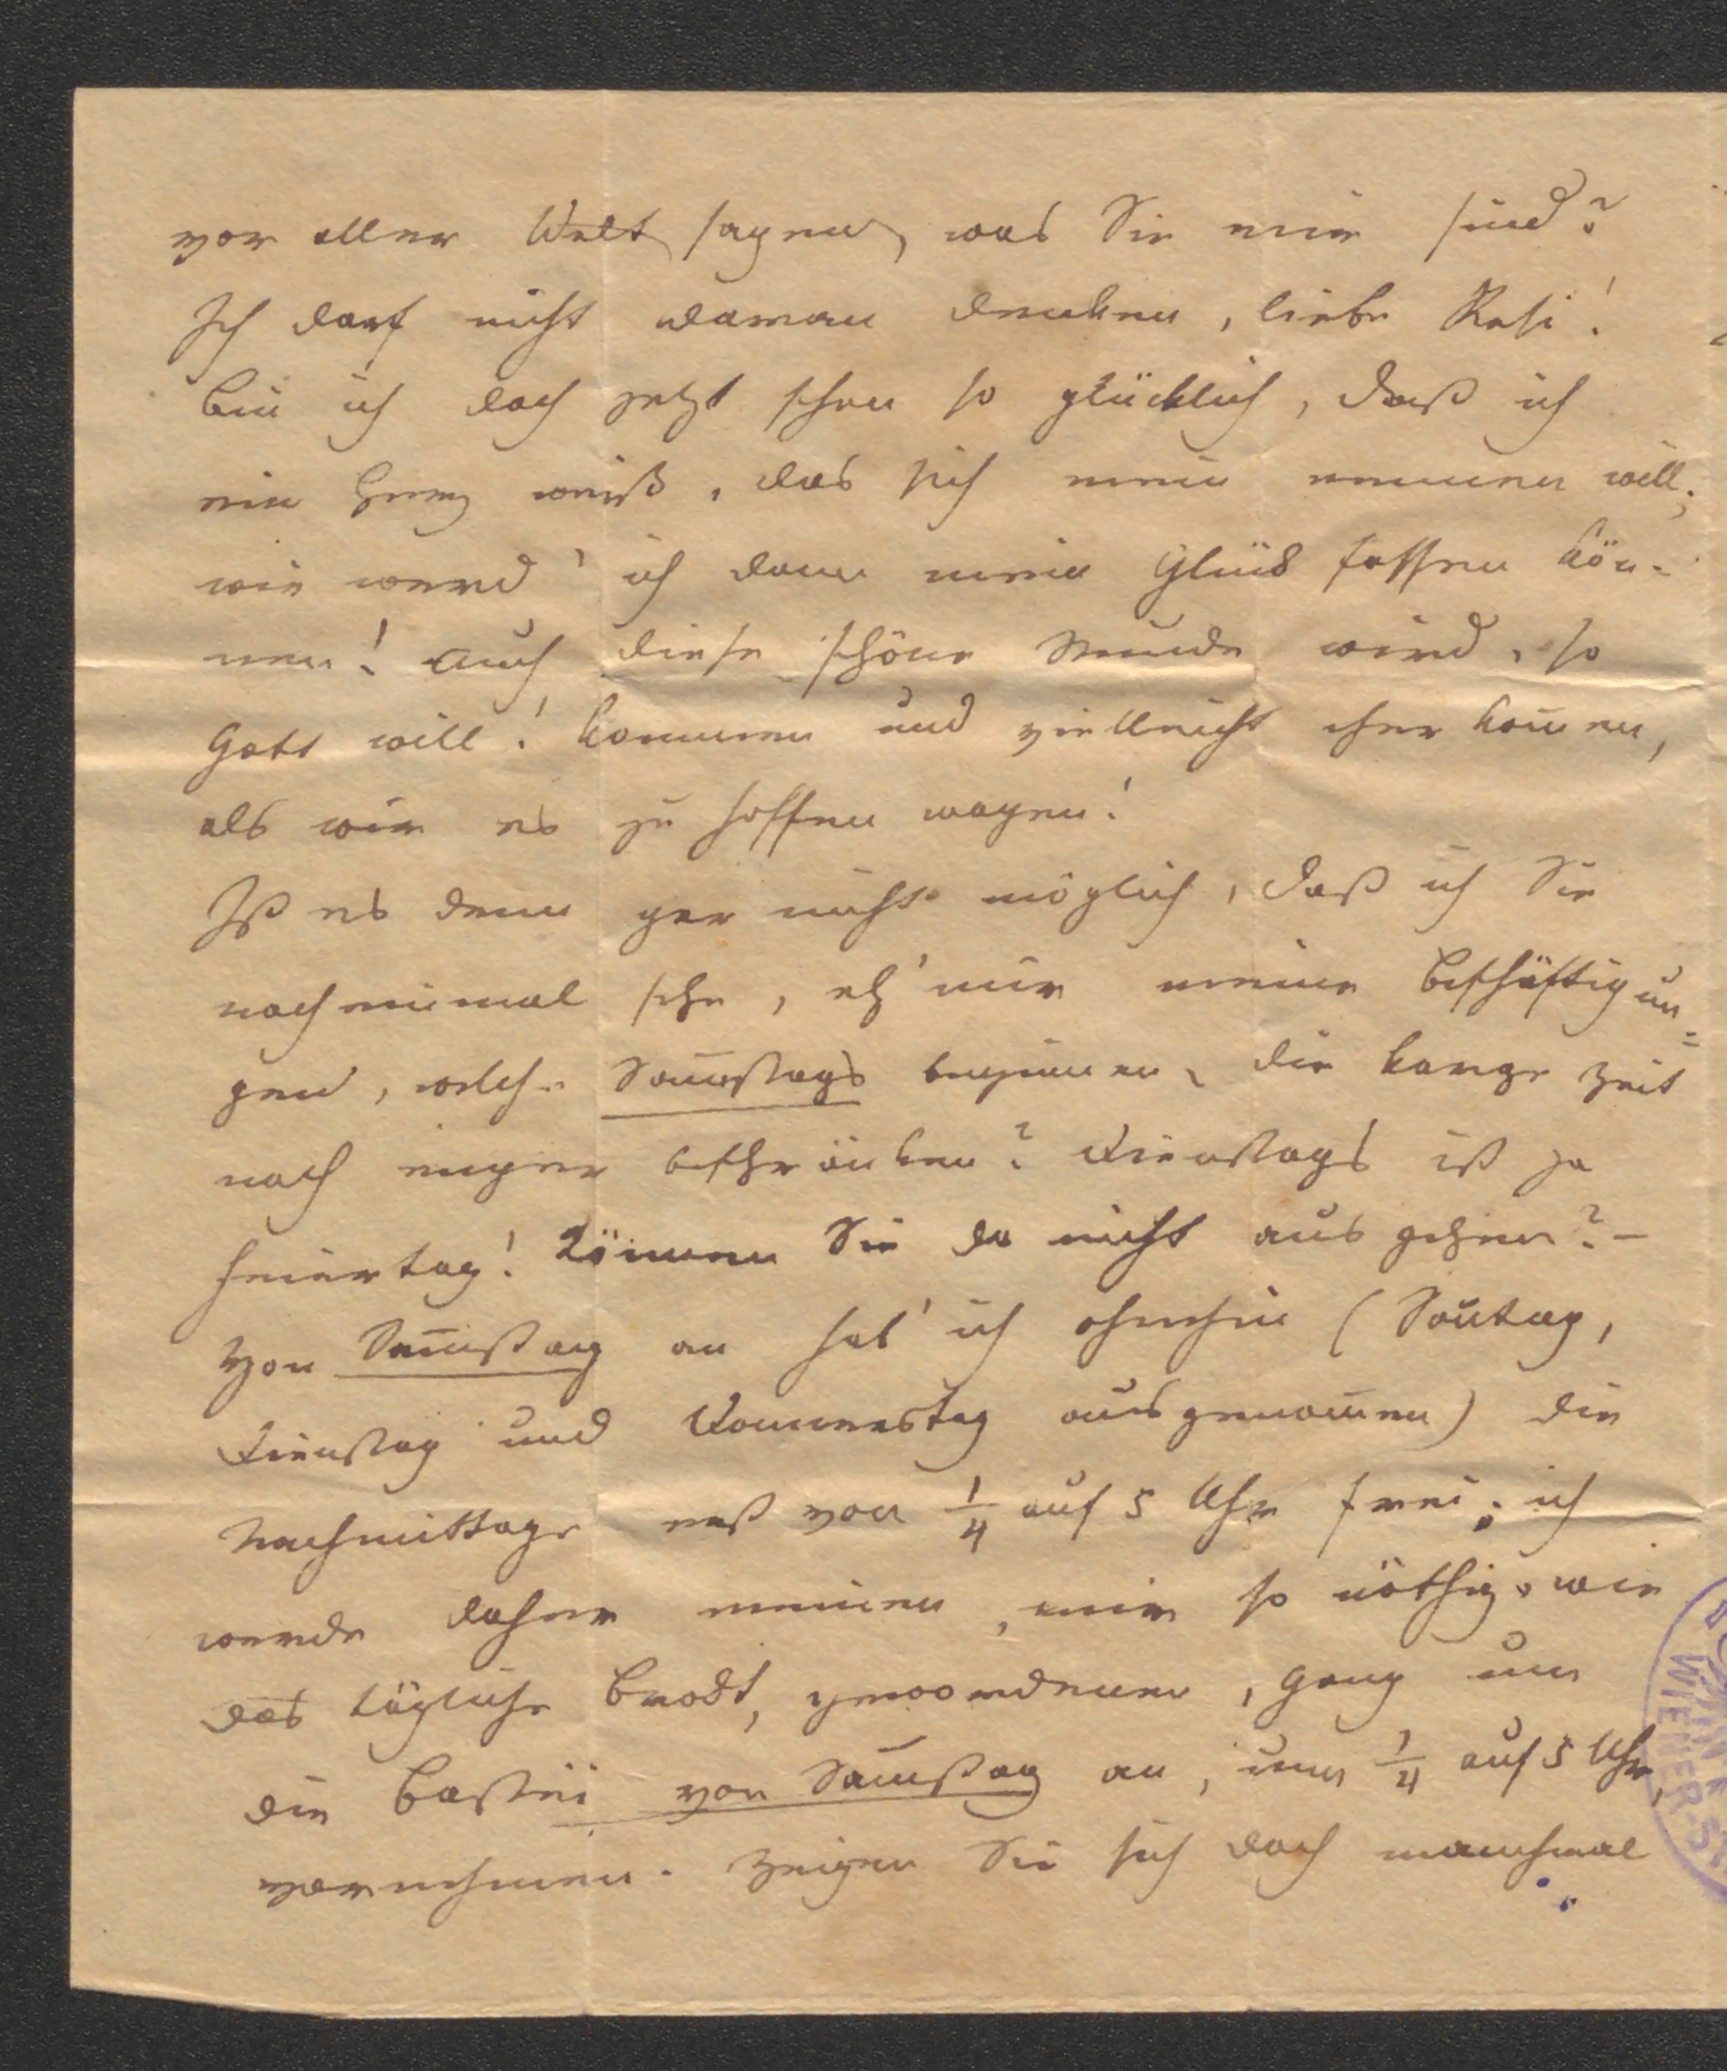 vor aller Welt sagen, was Sie mir sind?
Ich darf nicht daran denken, liebe Resi!
bin ich doch jetzt schon so glücklich, daß ich
ein Herz weiß, das sich mein nennen will;
wie werd' ich dann mein Glück fassen kön-
nen! Auch diese schöne Stunde wird, so
Gott will! kommen und vielleicht eher kom̄en,
als wir es zu hoffen wagen!
Ist es denn gar nicht möglich, daß ich Sie
noch einmal sehe, eh' mir meine Beschäftigun=
gen, welche Sam̄stags beginnen, die karge Zeit
noch enger beschränken? Dienstags ist ja
Feiertag! Können Sie da nicht ausgehen? –
Von Sam̄stag an hab' ich ohnehin (Son̄tag,
Dienstag und Donnerstag ausgenom̄en) die
Nachmittage erst von 1/4 auf 5 Uhr frei; ich
werde daher meinen, mir so nöthig, wie
das tägliche Brodt, gewordenen, Gang um
die Bastei von Sam̄stag an, um 1/4 auf 5 Uhr,
vornehmen. Zeigen Sie sich doch manchmal
WIENER S